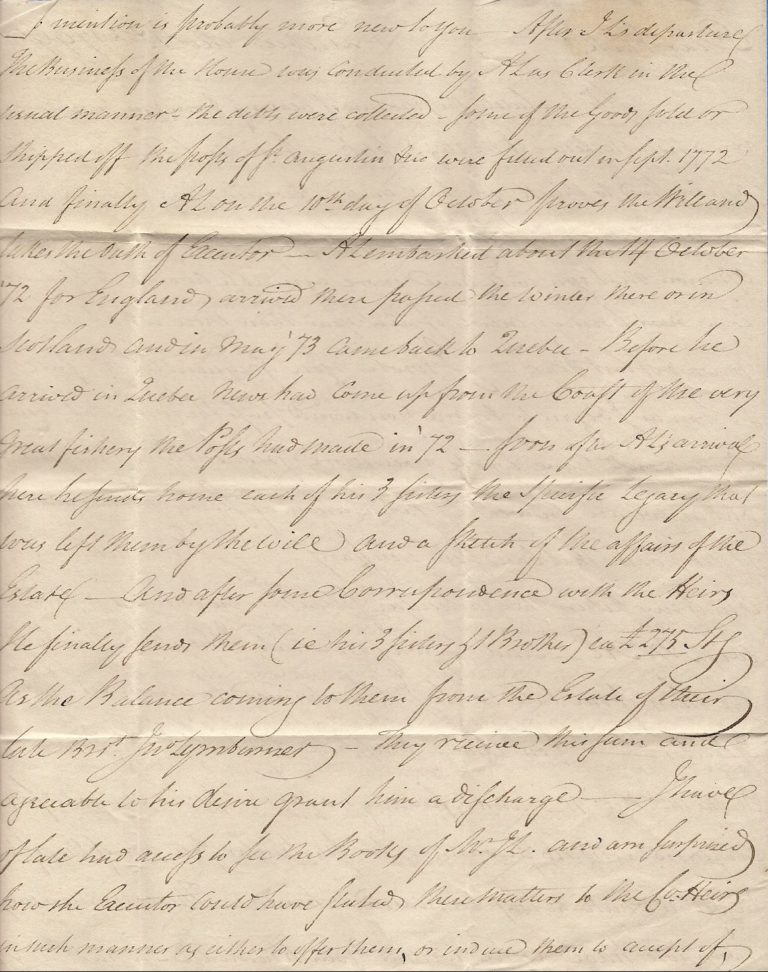 I mention is probably more new to you After JL's departure
The Business of the House was conducted by AL as Clerk in the
usual manner - the debts were collected - some of the Goods sold or
shipped off the posts of St. Augustin &ca were fitted out in Sept. 1772
And finally AL on the 10th day of October proves the Will and
takes the Oath of Executor — AL embarked about the 14 October
'72 for England, arrived there passed the winter there or in
Scotland and in May '73 came back to Quebec - Before he
arrived in Quebec news had come up from the Coast of the very
great fishery the Posts had made in '72 — soon after AL's arrival
here he sends home each of his 3 sisters the Specific Legacy that
was left them by the will and a sketch of the affairs of the
Estate — And after some Correspondence with the Heirs
He finally sends them (ie his 3 sisters & 1 Brother) ea £275 Stg
As the Balance coming to them from the Estate of their
late Bror. Jno Lymburner — They receive this sum and
agreeable to his desire grant him a discharge — I have
of late had access to see the Books of Mr. JL. and am surprized
how the Executor could have stated these matters to the Co. Heirs
in such manner as either to offer them, or induce them to accept of,